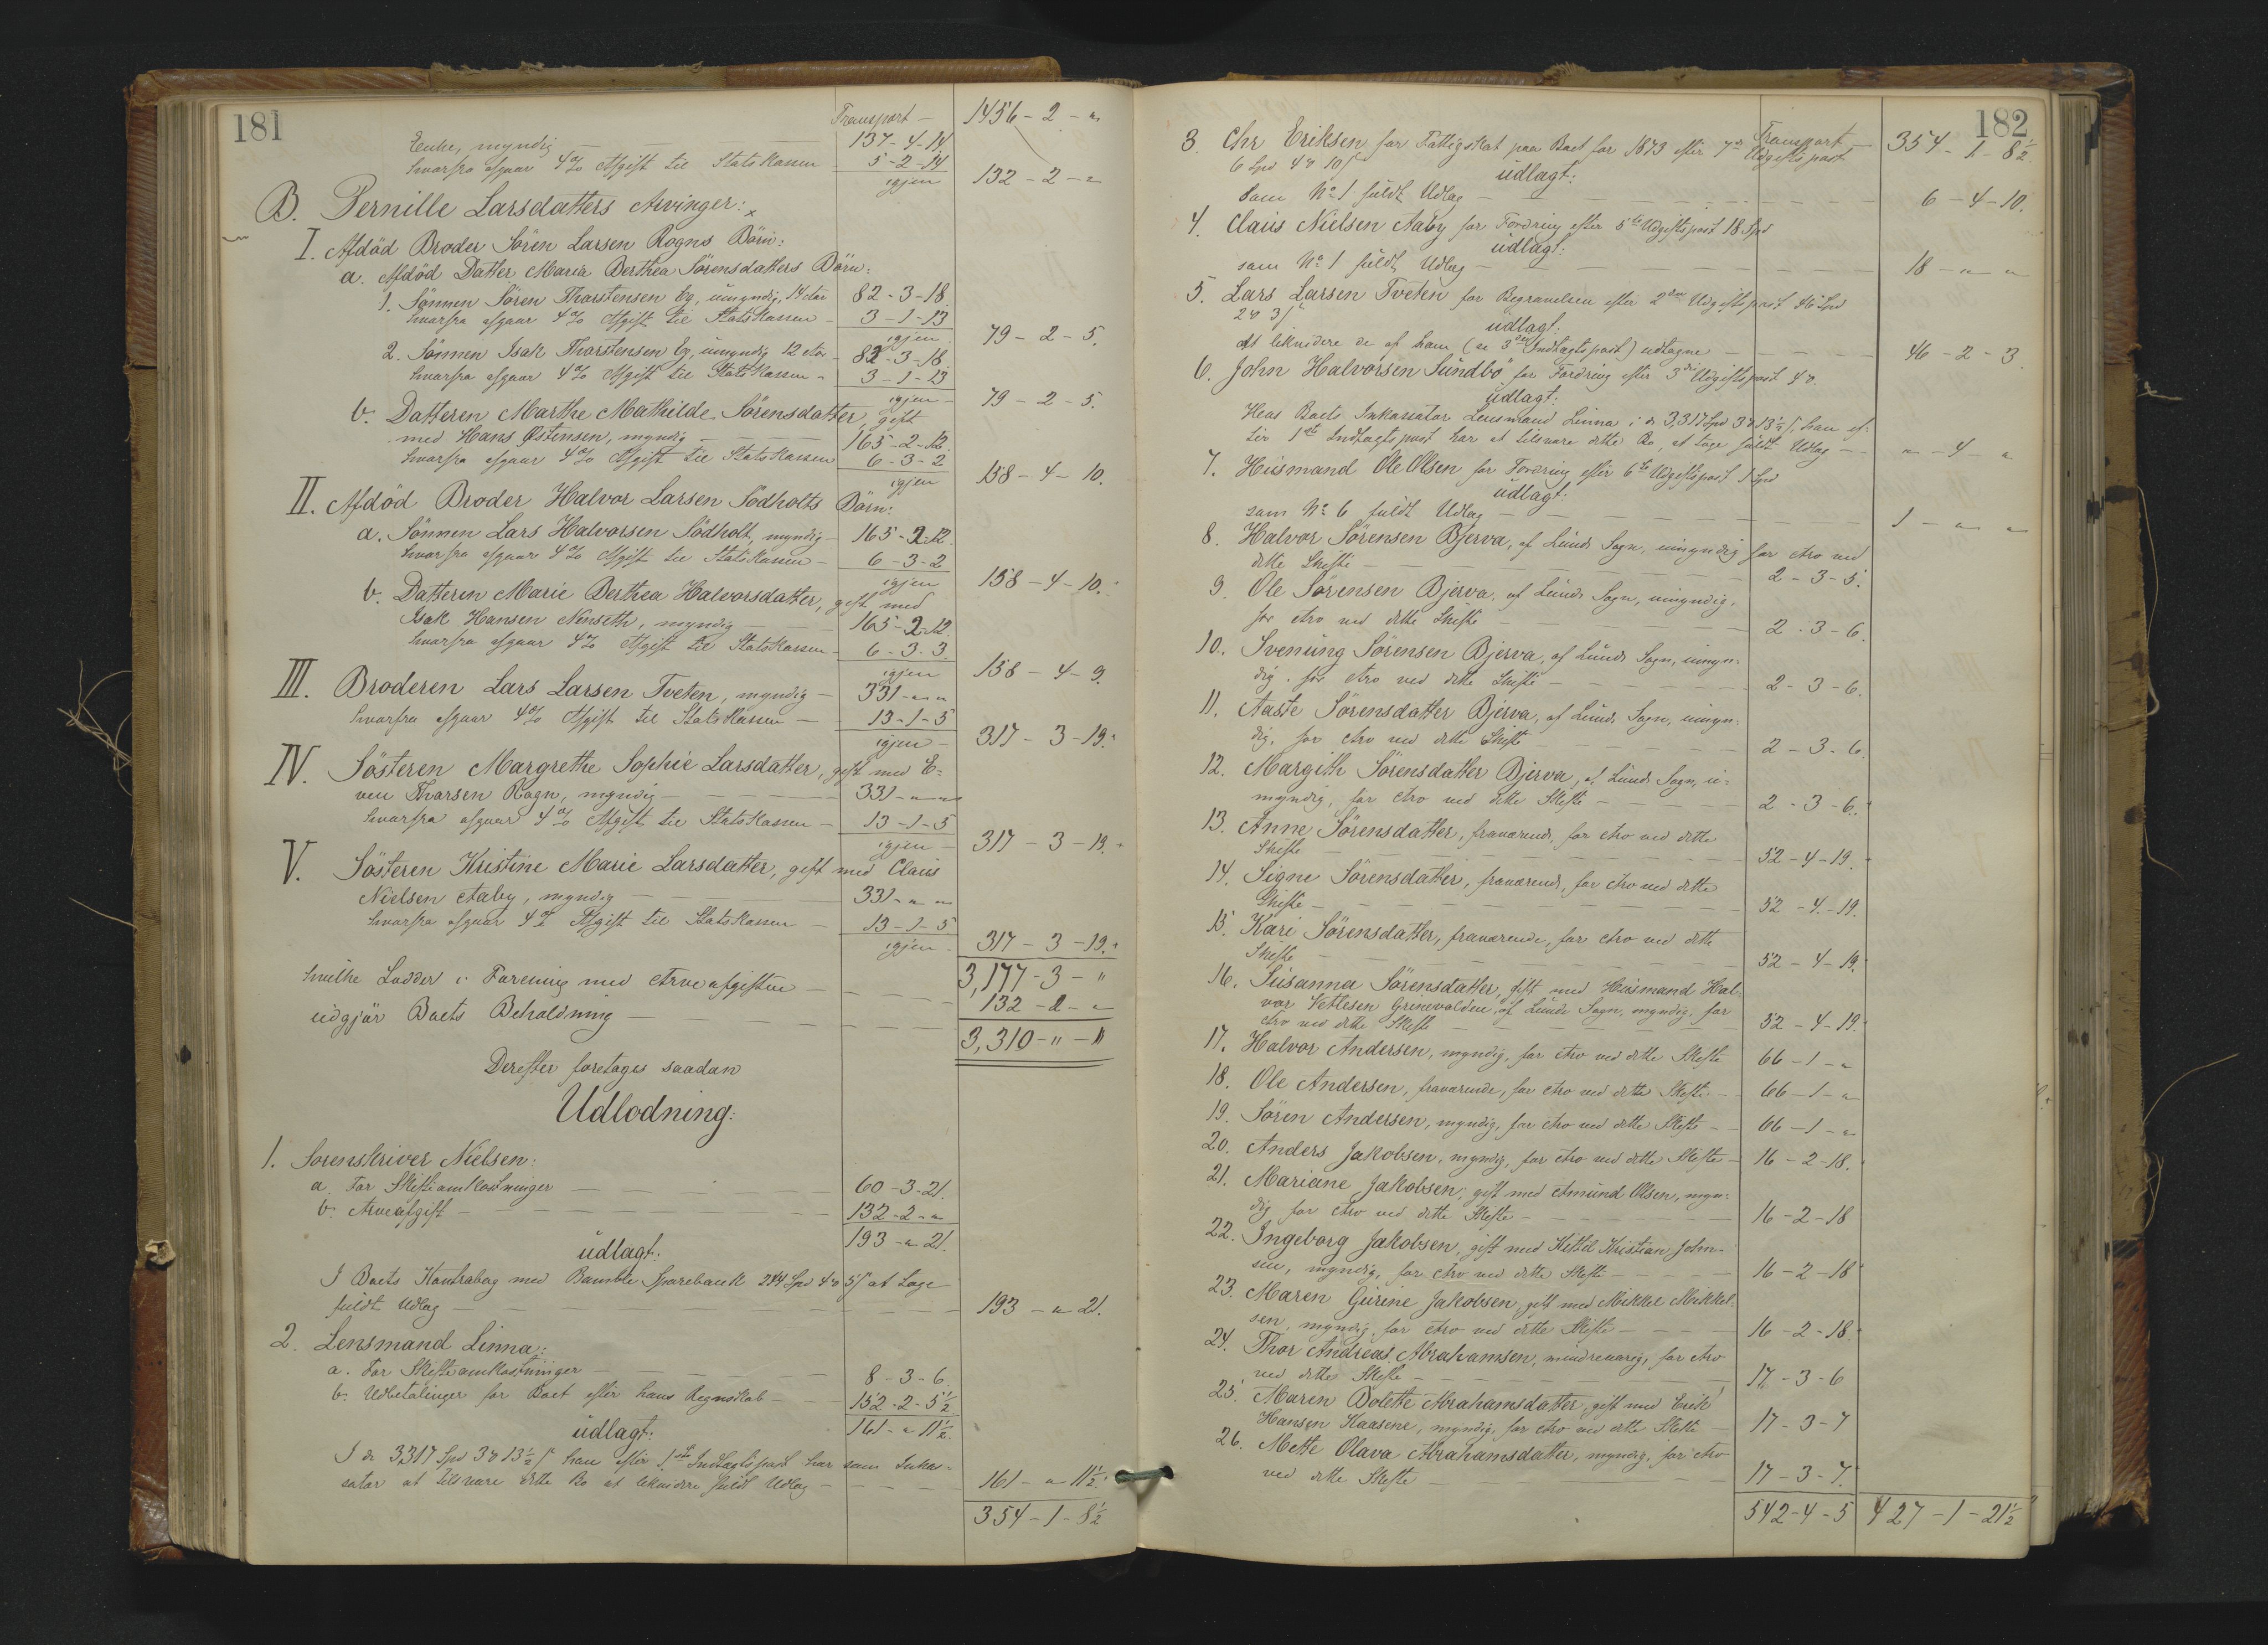 181
Transport - 1456 - 2 - "
Enke, myndig - 137 - 4 - 14
hvorfra afgaar 4% Afgift til Statskassen 5 - 2 - 14
igjen 132 - 2 - "
B. Pernille Larsdatters Arvinger:
I. Afdöd Broder Sören Larsen Rogns Börn:
a. Afdöd Datter Maria Berthea Sörensdatters Börn:
1. Sönnen Sören Thorstensen Eg, umyndig, 14 Aar 82 - 3 - 18
hvorfra afgaar 4% Afgift til Statskassen - 3 - 1 - 13
igjen 79 - 2 - 5.
2. Sönnen Isak Thorstensen Eg, umyndig 12 Aar - 82 - 3 - 18
hvorfra afgaar 4% Afgift til Statskassen - 3 - 1 - 13
igjen - 79 - 2 - 5.
b. Datteren Marthe Mathilde Sörensdatter, gift
med Hans Østensen, myndig - 165 - 2 - 12
hvorfra afgaar 4% Afgift til Statskassen 6 - 3 - 2
igjen 158 - 4 - 10.
II. Afdöd Broder Halvor Larsen Södholts Börn:
a. Sönnen Lars Halvorsen Södholt, myndig - 165 - 2 - 12.
hvorfra afgaar 4% Afgift til Statskassen - 6 - 3 - 2
igjen 158 - 4 - 10.
b. Datteren Marie Berthea Halvorsdatter, gift med
Isak Hansen Nenseth, myndig - 165 - 2 - 12
hvorfra afgaar 4% Afgift til Statskassen - 6 - 3 - 3
igjen 158 - 4 - 9.
III. Broderen Lars Larsen Tveten, myndig - 331 - " - "
hvorfra afgaar 4% Afgift til Statskassen - 13 - 1 - 5
igjen - 317 - 3 - 19.
IV. Sösteren Margrethe Sophie Larsdatter, gift med E-
ven Thorsen Rogn, myndig - 331 - " - "
hvorfra afgaar 4% Afgift til Statskassen - 13 - 1 - 5
igjen - 317 - 3 - 19.
V. Sösteren Kristine Marie Larsdatter, gift med Claus
Nielsen Aaby, myndig - 331 - " - "
hvorfra afgaar 4% Afgift til Statskassen - 13 - 1 - 5
igjen - 317 - 3 - 19.
hvilke Lodder i Forening med Arveafgiften - 3,177 - 3 - "
132 - 2 - "
udgjör Boets Beholdning - 3,310 - " - "
Derefter foretages saadan
Udlodning:
1. Sorenskriver Nielsen:
a. For Skifteomkostninger - 60 - 3 - 21.
b. Arveafgift - 132 - 2 - "
193 - " 21.
udlagt:
I Boets Kontrabog med Bamble Sparebank 244 Spd 4 o 5 s at tage
fuldt Udlag - 193 - " 21.
2. Lensmand Linna:
a. For Skifteomkostninger - 8 - 3 - 6.
b. Udbetalinger for Boet efter hans Regnskab - 152 - 2 - 5½
161 - " 11½.
udlagt:
I de 3317 Spd 3 o 13½ s han efter 1ste Indtægtspost har som Inkas-
sator at tilsvare dette Bo at likvidere fuldt Udlag - 161 - " 11½
354 - 1 - 8½
182
Transport - 354 - 1 - 8½
3. Chr Eriksen for Fattigskat paa Boet for 1873 efter 7de Udgiftspost
6 Spd 4 o 10 s
udlagt:
som No 1 fuldt Udlag - 6 - 4 - 10.
4. Claus Nielsen Aaby for Fordring efter 5te Udgiftspost 18 Spd
udlagt:
som No 1 fuldt Udlag - 18 - " - "
5. Lars Larsen Tveten for Begravelsen efter 2den Udgiftspost 46 Spd
2 o 3 s
udlagt:
at likvidere de af ham (se 3die Indtægtspost) udtagne - 46 - 2 - 3.
6. John Halvorsen Sundbö for Fordring efter 3die Udgiftspost 4 o.
udlagt:
Hos Boets Inkassator Lensmand Linna i de 3,317 Spd 3 o 13½ s, han ef-
ter 1ste Indtægtspost har at tilsvare dette Bo, at tage fuldt Udlag - " - 4 - "
7. Husmand Ole Olsen for Fordring efter 6te Udgiftspost 1 Spd
udlagt:
som No 6 fuldt Udlag - 1 - " - "
8. Halvor Sörensen Bjerva, af Lunde Sogn, umyndig for Arv ved
dette Skifte - 2 - 3 - 5.
9. Ole Sörensen Bjerva, af Lunde Sogn, umyndig,
for Arv ved dette Skifte - 2 - 3 - 6.
10. Svenung Sörensen Bjerva, af Lunde Sogn, umyn-
dig, for Arv ved dette Skifte - 2 - 3 - 6.
11. Aaste Sörensdatter Bjerva, af Lunde Sogn, umyn-
dig, for Arv ved dette Skifte - 2 - 3 - 6.
12. Margith Sörensdatter Bjerva, af Lunde Sogn, u-
myndig, for Arv ved dette Skifte - 2 - 3 - 6.
13. Anne Sörensdatter, fraværende, for Arv ved dette
Skifte - 52 - 4 - 19.
14. Signe Sörensdatter, fraværende, for Arv ved dette
Skifte - 52 - 4 - 19.
15. Kari Sörensdatter, fraværende, for Arv ved dette
Skifte - 52 - 4 - 19.
16. Susanna Sörensdatter, gift med Husmand Hal-
vor Vetlesen Grinevolden, af Lunde Sogn, myndig, for
Arv ved dette Skifte - 52 - 4 - 19.
17. Halvor Andersen, myndig, for Arv ved dette Skifte 66 - 1 - "
18. Ole Andersen, fraværende, for Arv ved dette Skifte - 66 - 1 - "
19. Sören Andersen, myndig, for Arv ved dette Skifte - 66 - 1 - "
20. Anders Jakobsen, myndig, for Arv ved dette Skifte - 16 - 2 - 18.
21. Mariane Jakobsen, gift med Amund Olsen, myn-
dig for Arv ved dette Skifte - 16 - 2 - 18
22. Ingeborg Jakobsen, gift med Kittil Kristian John-
sen, myndig, for Arv ved dette Skifte - 16 - 2 - 18
23. Maren Gurine Jakobsen, gift med Mikkel Mikkel-
sen, myndig for Arv ved dette Skifte - 16 - 2 - 18.
24. Thor Andreas Abrahamsen, mindreaarig, for Arv
ved dette Skifte - 17 - 3 - 6
25. Maren Dolette Abrahamsdatter, gift med Erik
Hansen Kaasene, myndig, for Arv ved dette Skifte - 17 - 3 - 7
26. Mette Olava Abrahamsdatter, myndig, for Arv
ved dette Skifte - 17 - 3 - 7.
542 - 4 - 5 427 - 1 - 21½